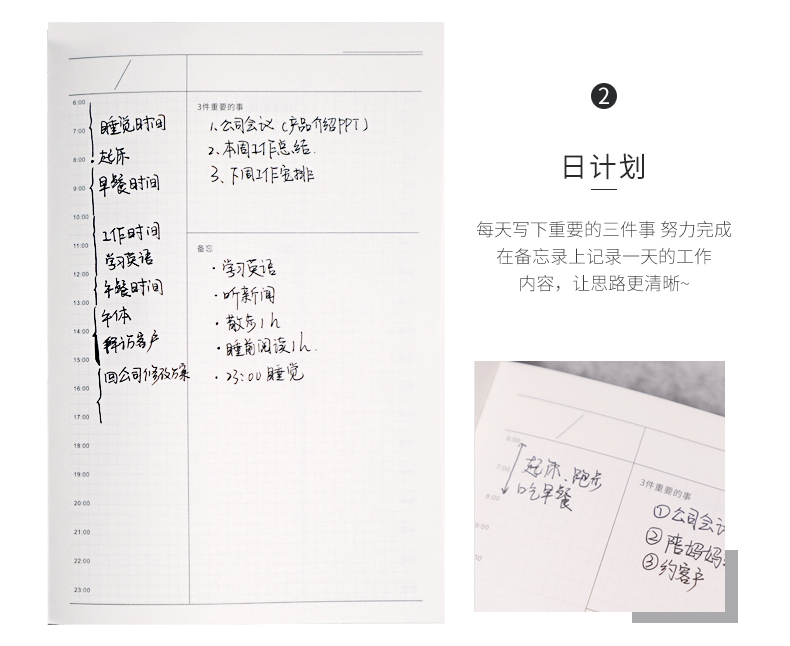 6:00
7:00
8:00
9:00
10:00
11:00
12:00
13:00
14:00
15:00
16:00
17:00
18:00
19:00
20:00
21:00
22:00
23:00
睡觉时间
起床
早餐时间
工作时间
学习英语
午餐时间
午休
拜访客户
回公司修改方案
3件重要的事
1、公司会议（产品介绍PPT）
2、本周工作总结.
3、下周工作安排
备忘
·学习英语
·听新闻
·散步1h
·睡前阅读1h.
·23:00 睡觉
2
日计划
每天写下重要的三件事 努力完成
在备忘录上记录一天的工作
内容，让思路更清晰~
6:00
7:00
8:00
9:00
起床、跑步
吃早餐
3件重要的事
①公司会议
②陪妈妈
③约客户